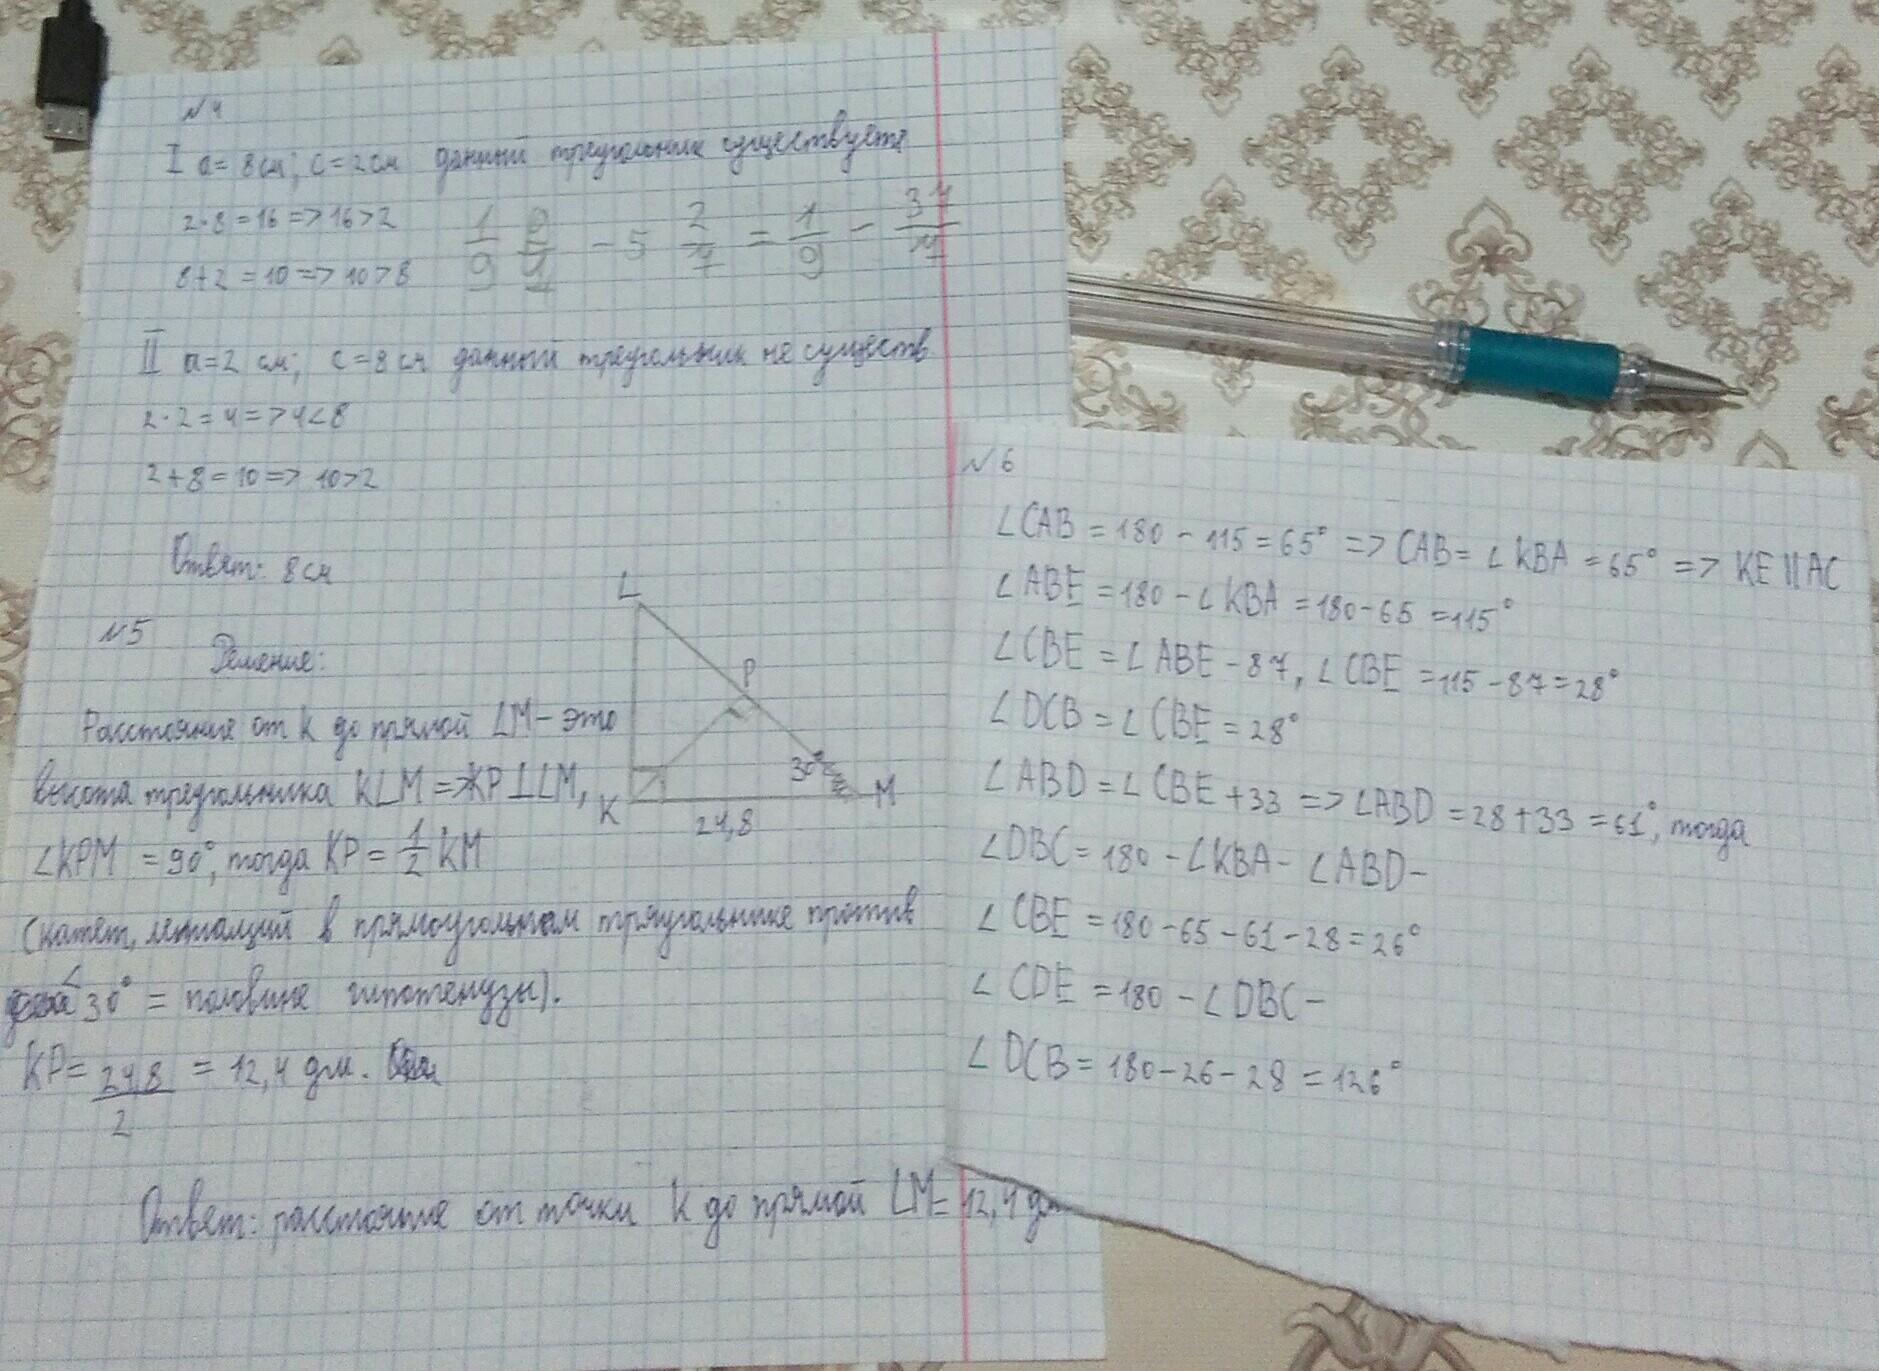 №4
I a = 8 см; c = 2 см данный треугольник существует
2·8 = 16 => 16>2
8+2 = 10 => 10>8
1/9 - 5 2/7 = 1/9 - 37/7
II a=2 см; c=8 см данный треугольник не существ.
2·2 = 4 => 4<8
2+8 = 10 => 10>2
Ответ: 8 см
№5
Решение:
Расстояние от K до прямой LM – это
высота треугольника KLM => KP⊥LM,
∠KPM = 90°, тогда KP = 1/2 KM
(катет, лежащий в прямоугольном треугольнике против
∠ 30° = половине гипотенузы).
KP = 24,8/2 = 12,4 дм.
Ответ: расстояние от точки K до прямой LM = 12,4
L
P
30°
K
M
24,8
№6
∠CAB = 180 - 115 = 65° => CAB = ∠KBA = 65° => KE || AC
∠ABE = 180 - ∠KBA = 180 - 65 = 115°
∠CBE = ∠ABE - 87, ∠CBE = 115 - 87 = 28°
∠DCB = ∠CBE = 28°
∠ABD = ∠CBE + 33 => ∠ABD = 28 + 33 = 61°, тогда
∠DBC = 180 - ∠KBA - ∠ABD -
∠CBE = 180 - 65 - 61 - 28 = 26°
∠CDE = 180 - ∠DBC -
∠DCB = 180 - 26 - 28 = 126°